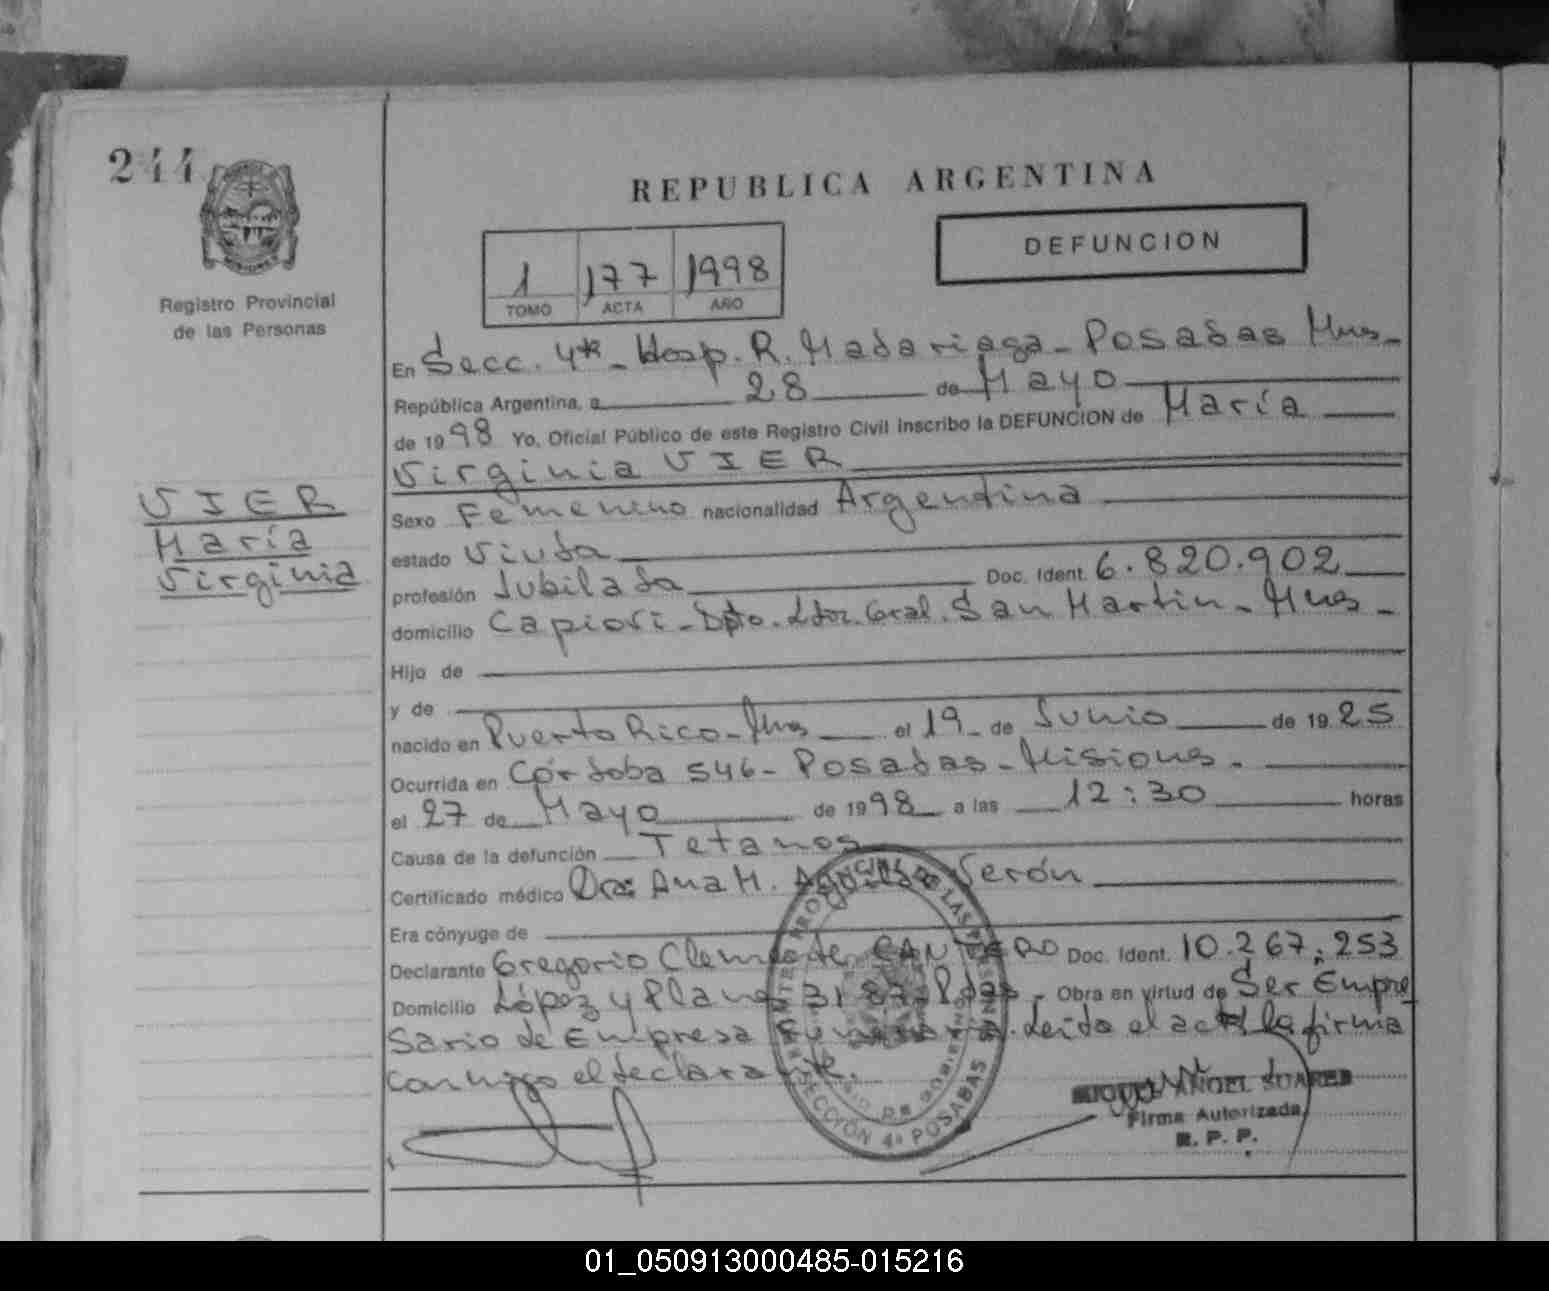 244
REPUBLICA ARGENTINA
DEFUNCION
1 177 1998
TOMO ACTA AÑO
Registro Provincial
de las Personas
En Secc. 4ta_ Hosp. R. Madariaga_ Posadas Mnes_
República Argentina, a 28 de Mayo
de 1998 Yo, Oficial Público de este Registro Civil inscribo la DEFUNCION de María
Virginia VIER
VIER
María
Virginia
Sexo Femenino nacionalidad Argentina
estado Viuda
profesión Jubilada Doc. Ident. 6.820.902
domicilio Capioví_Dpto. Ldor. Gral. San Martin_Mnes_
Hijo de
y de
nacido en Puerto Rico_Mnes el 19_ de Junio de 1925
Ocurrida en Córdoba 546_ Posadas_Misiones.
el 27 de Mayo de 1998 a las 12:30 horas
Causa de la defunción Tetanos
Certificado médico Dra: Ana M. Verón
Era cónyuge de
Declarante Gregorio Clemente CANTERO Doc. Ident. 10.267.253
Domicilio López y Planes 3187_Pdas_ Obra en virtud de Ser Empre
sario de Empresa Funeraria. Leída el acta la firma
conmigo el declarante.
SECCIÓN 4ª POSADAS
MIGUEL ANGEL SUAREZ
Firma Autorizada
R. P. P.
01_050913000485-015216